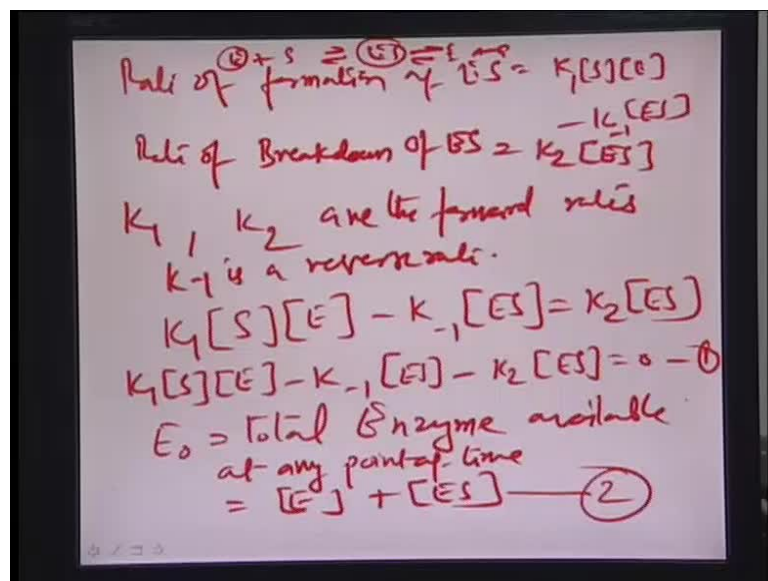 E + S ⇌ ES ⇌ E +P
Rate of formation of ES = K₁[S][E]
- K₋₁[ES]
Rate of Breakdown of ES = K₂[ES]
K₁, K₂ are the forward rates
K-1 is a reverse rate.
K₁[S][E] - K₋₁[ES] = K₂[ES]
K₁[S][E] - K₋₁[ES] - K₂[ES] = 0 - ①
E₀ = Total Enzyme available
at any point of time
= [E] + [ES] — ②